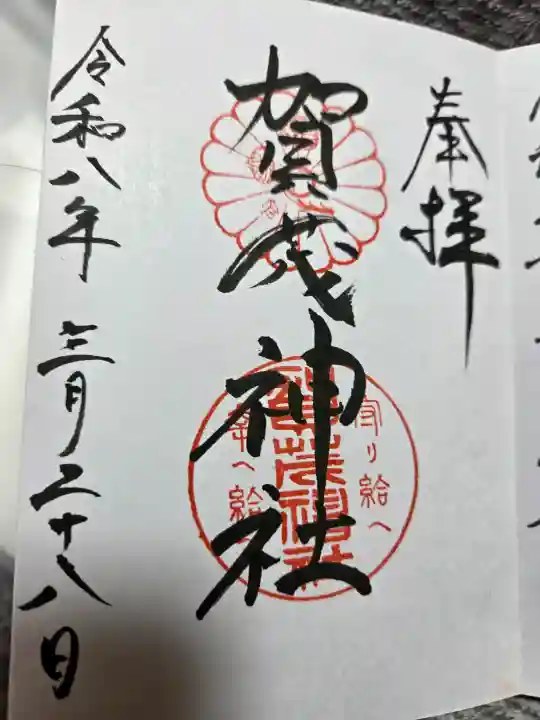 奉拝
賀茂神社
守り給へ
賀茂神社
幸へ給
令和八年三月二十八日